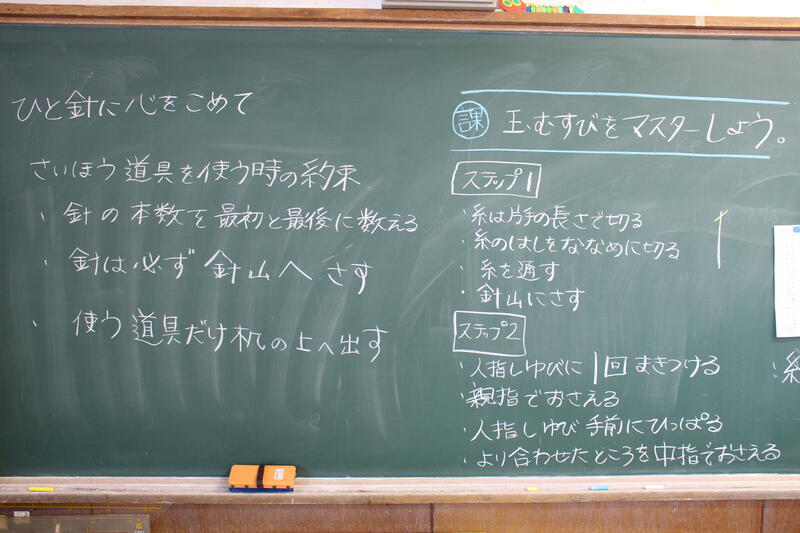 ひと針に心をこめて
さいほう道具を使う時の約束
・針の本数を最初と最後に数える
・針は必ず針山へさす
・使う道具だけ机の上へ出す
課 玉むすびをマスターしよう。
ステップ1
・糸は片手の長さで切る
・糸のはしをななめに切る
・糸を通す
・針山にさす
ステップ2
・人指しゆびに1回まきつける
・親指でおさえる
・人指しゆび手前にひっぱる
・より合わせたところを中指でおさえる